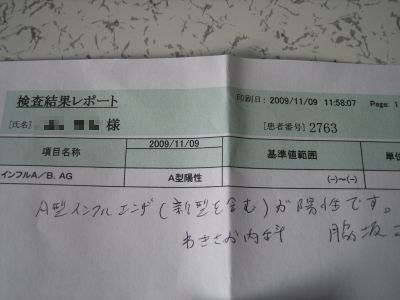 検査結果レポート
印刷日：2009/11/09 11:58:07 Page: 1
[氏名] 様
[患者番号] 2763
項目名称 2009/11/09 基準値範囲 単位
インフルA／B. AG A型陽性 (-)～(-)
A型インフルエンザ(新型を含む)が陽性です。
わきさか内科 脇坂